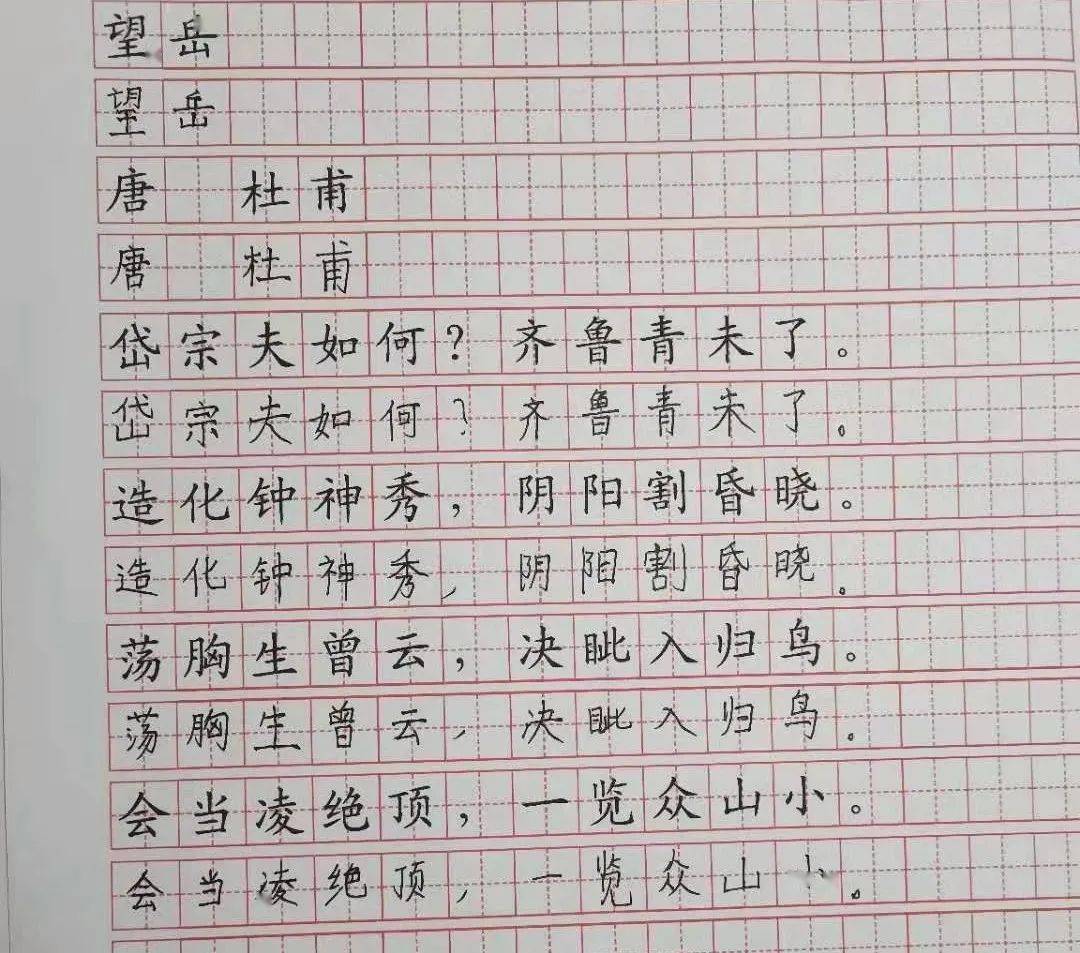 望岳
望岳
唐 杜甫
唐 杜甫
岱宗夫如何？齐鲁青未了。
岱宗夫如何？齐鲁青未了。
造化钟神秀，阴阳割昏晓。
造化钟神秀，阴阳割昏晓。
荡胸生曾云，决眦入归鸟。
荡胸生曾云，决眦入归鸟。
会当凌绝顶，一览众山小。
会当凌绝顶，一览众山小。